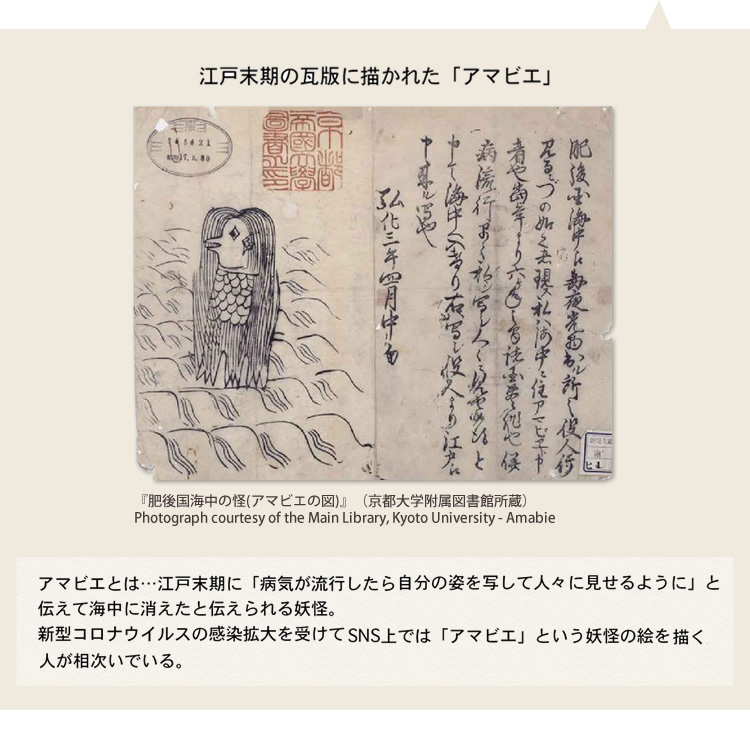 江戸末期の瓦版に描かれた「アマビエ」
京都
帝國大學
圖書之印
肥後国海中え毎夜光物出ル所之役人行
見るニづの如く者現ス私ハ海中ニ住アマビヱト申
者也當年より六ヶ年之間諸国豊作也併
病流行早々私ヲ写シ人々ニ見セ候得と
申て海中へ入けり右写シ役人より江戸え
申来ル写也
弘化三年四月中旬
『肥後国海中の怪(アマビエの図)』（京都大学附属図書館所蔵）
Photograph courtesy of the Main Library, Kyoto University - Amabie
アマビエとは…江戸末期に「病気が流行したら自分の姿を写して人々に見せるように」と
伝えて海中に消えたと伝えられる妖怪。
新型コロナウイルスの感染拡大を受けてSNS上では「アマビエ」という妖怪の絵を描く
人が相次いでいる。